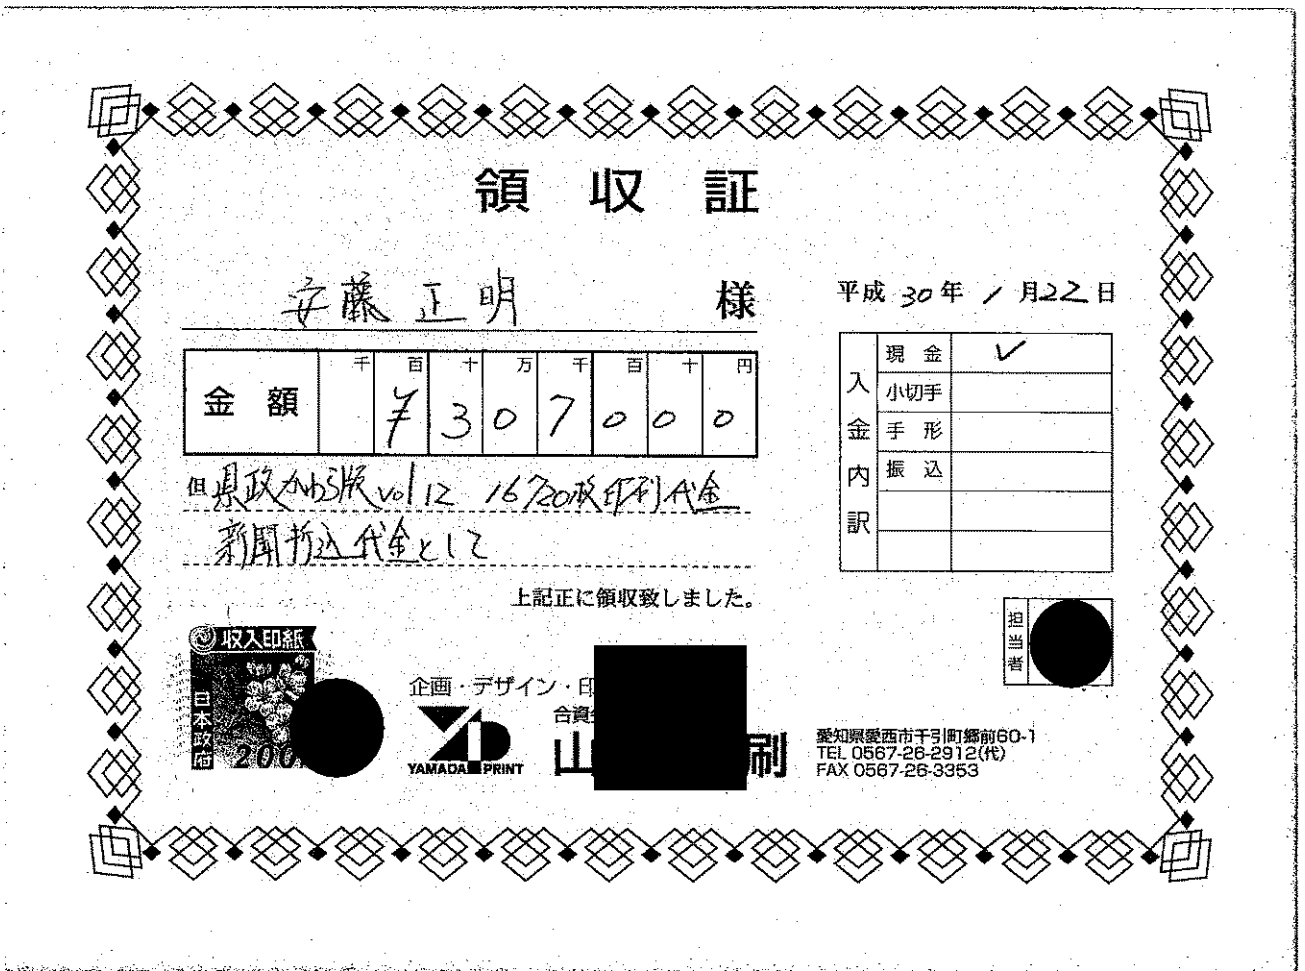 領収証
安藤正明 様
平成30年1月22日
千 百 十 万 千 百 十 円
金額 ¥307000
但 県政かわら版 vol 12 16720枚印刷代金
新聞折込代金として
上記正に領収致しました。
入金内訳
現金 ✓
小切手
手形
振込
担当者
収入印紙
日本政府
200
企画・デザイン・印
合資
山 刷
YAMADA PRINT
愛知県愛西市千引町郷前60-1
TEL 0567-26-2912(代)
FAX 0567-26-3353